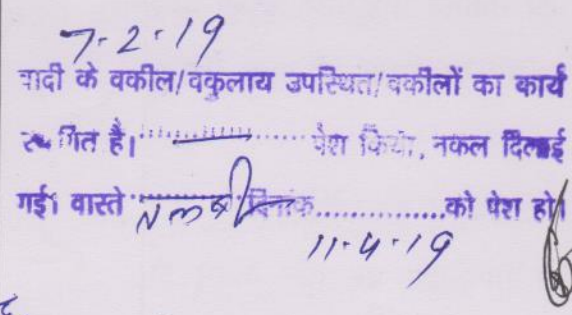 7-2-19
वादी के वकील/वकुलाय उपस्थित/वकीलों का कार्य
स्थगित है।.................... पेश किया, नकल दिलाई
गई। वास्ते ............ दिनांक................को पेश हो।
11-4-19